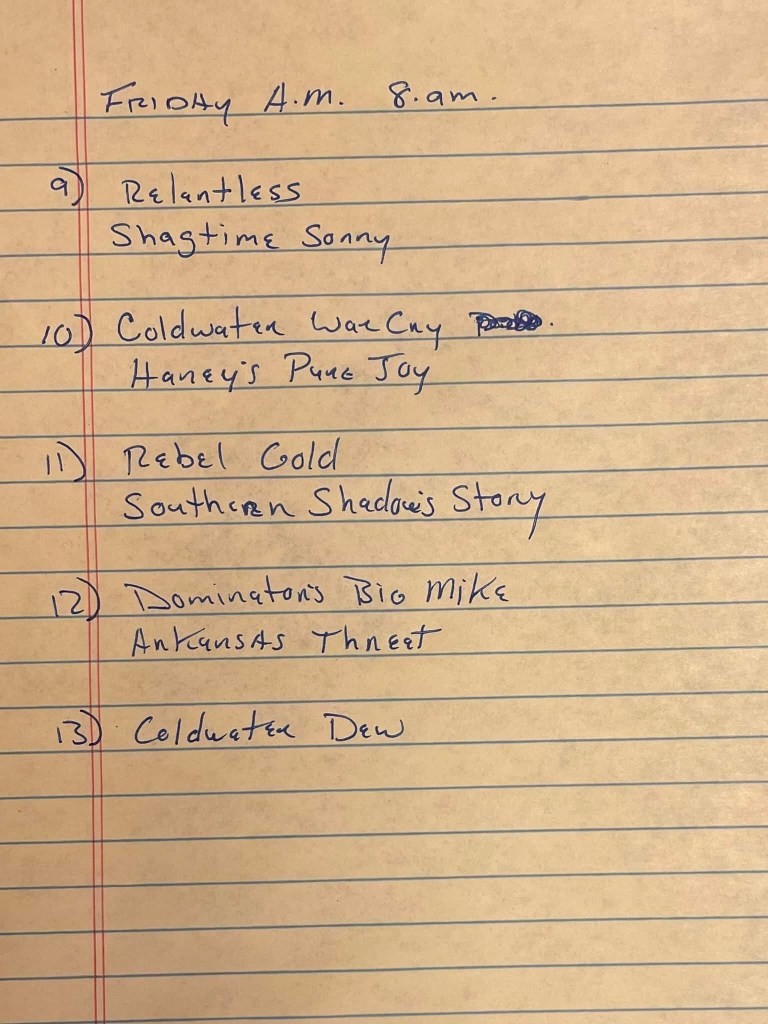 FRIDAY A.M. 8.am.
9) Relantless
Shagtime Sonny
10) Coldwater War Cry
Haney's Pure Joy
11) Rebel Gold
Southern Shadow's Story
12) Dominator's Big Mike
Arkansas Threet
13) Coldwater Dew